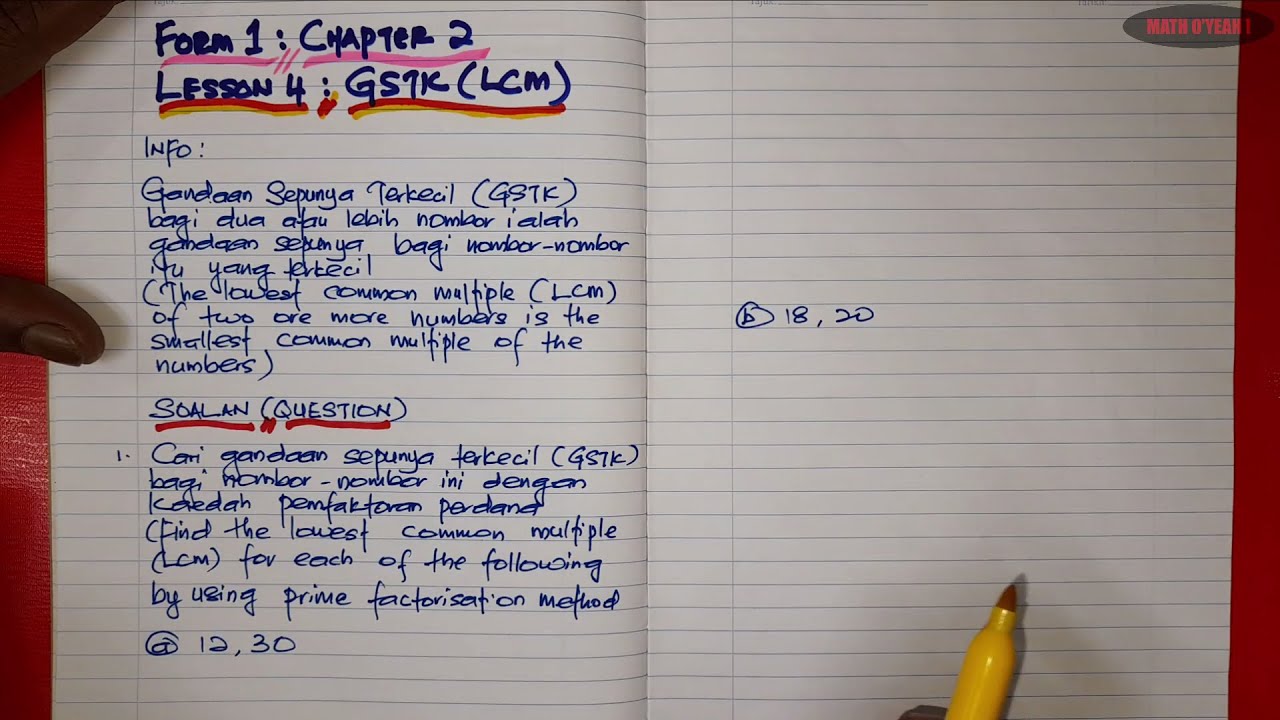 MATH O'YEAH !
FORM 1 : CHAPTER 2
LESSON 4 : GSTK (LCM)
INFO :
Gandaan Sepunya Terkecil (GSTK)
bagi dua atau lebih nombor ialah
gandaan sepunya bagi nombor-nombor
itu yang terkecil
(The lowest common multiple (LCM)
of two ore more numbers is the
smallest common multiple of the
numbers)
SOALAN (QUESTION)
1. Cari gandaan sepunya terkecil (GSTK)
bagi nombor-nombor ini dengan
kaedah pemfaktoran perdana
(Find the lowest common multiple
(LCM) for each of the following
by using prime factorisation method
(a) 12, 30
(b) 18, 20